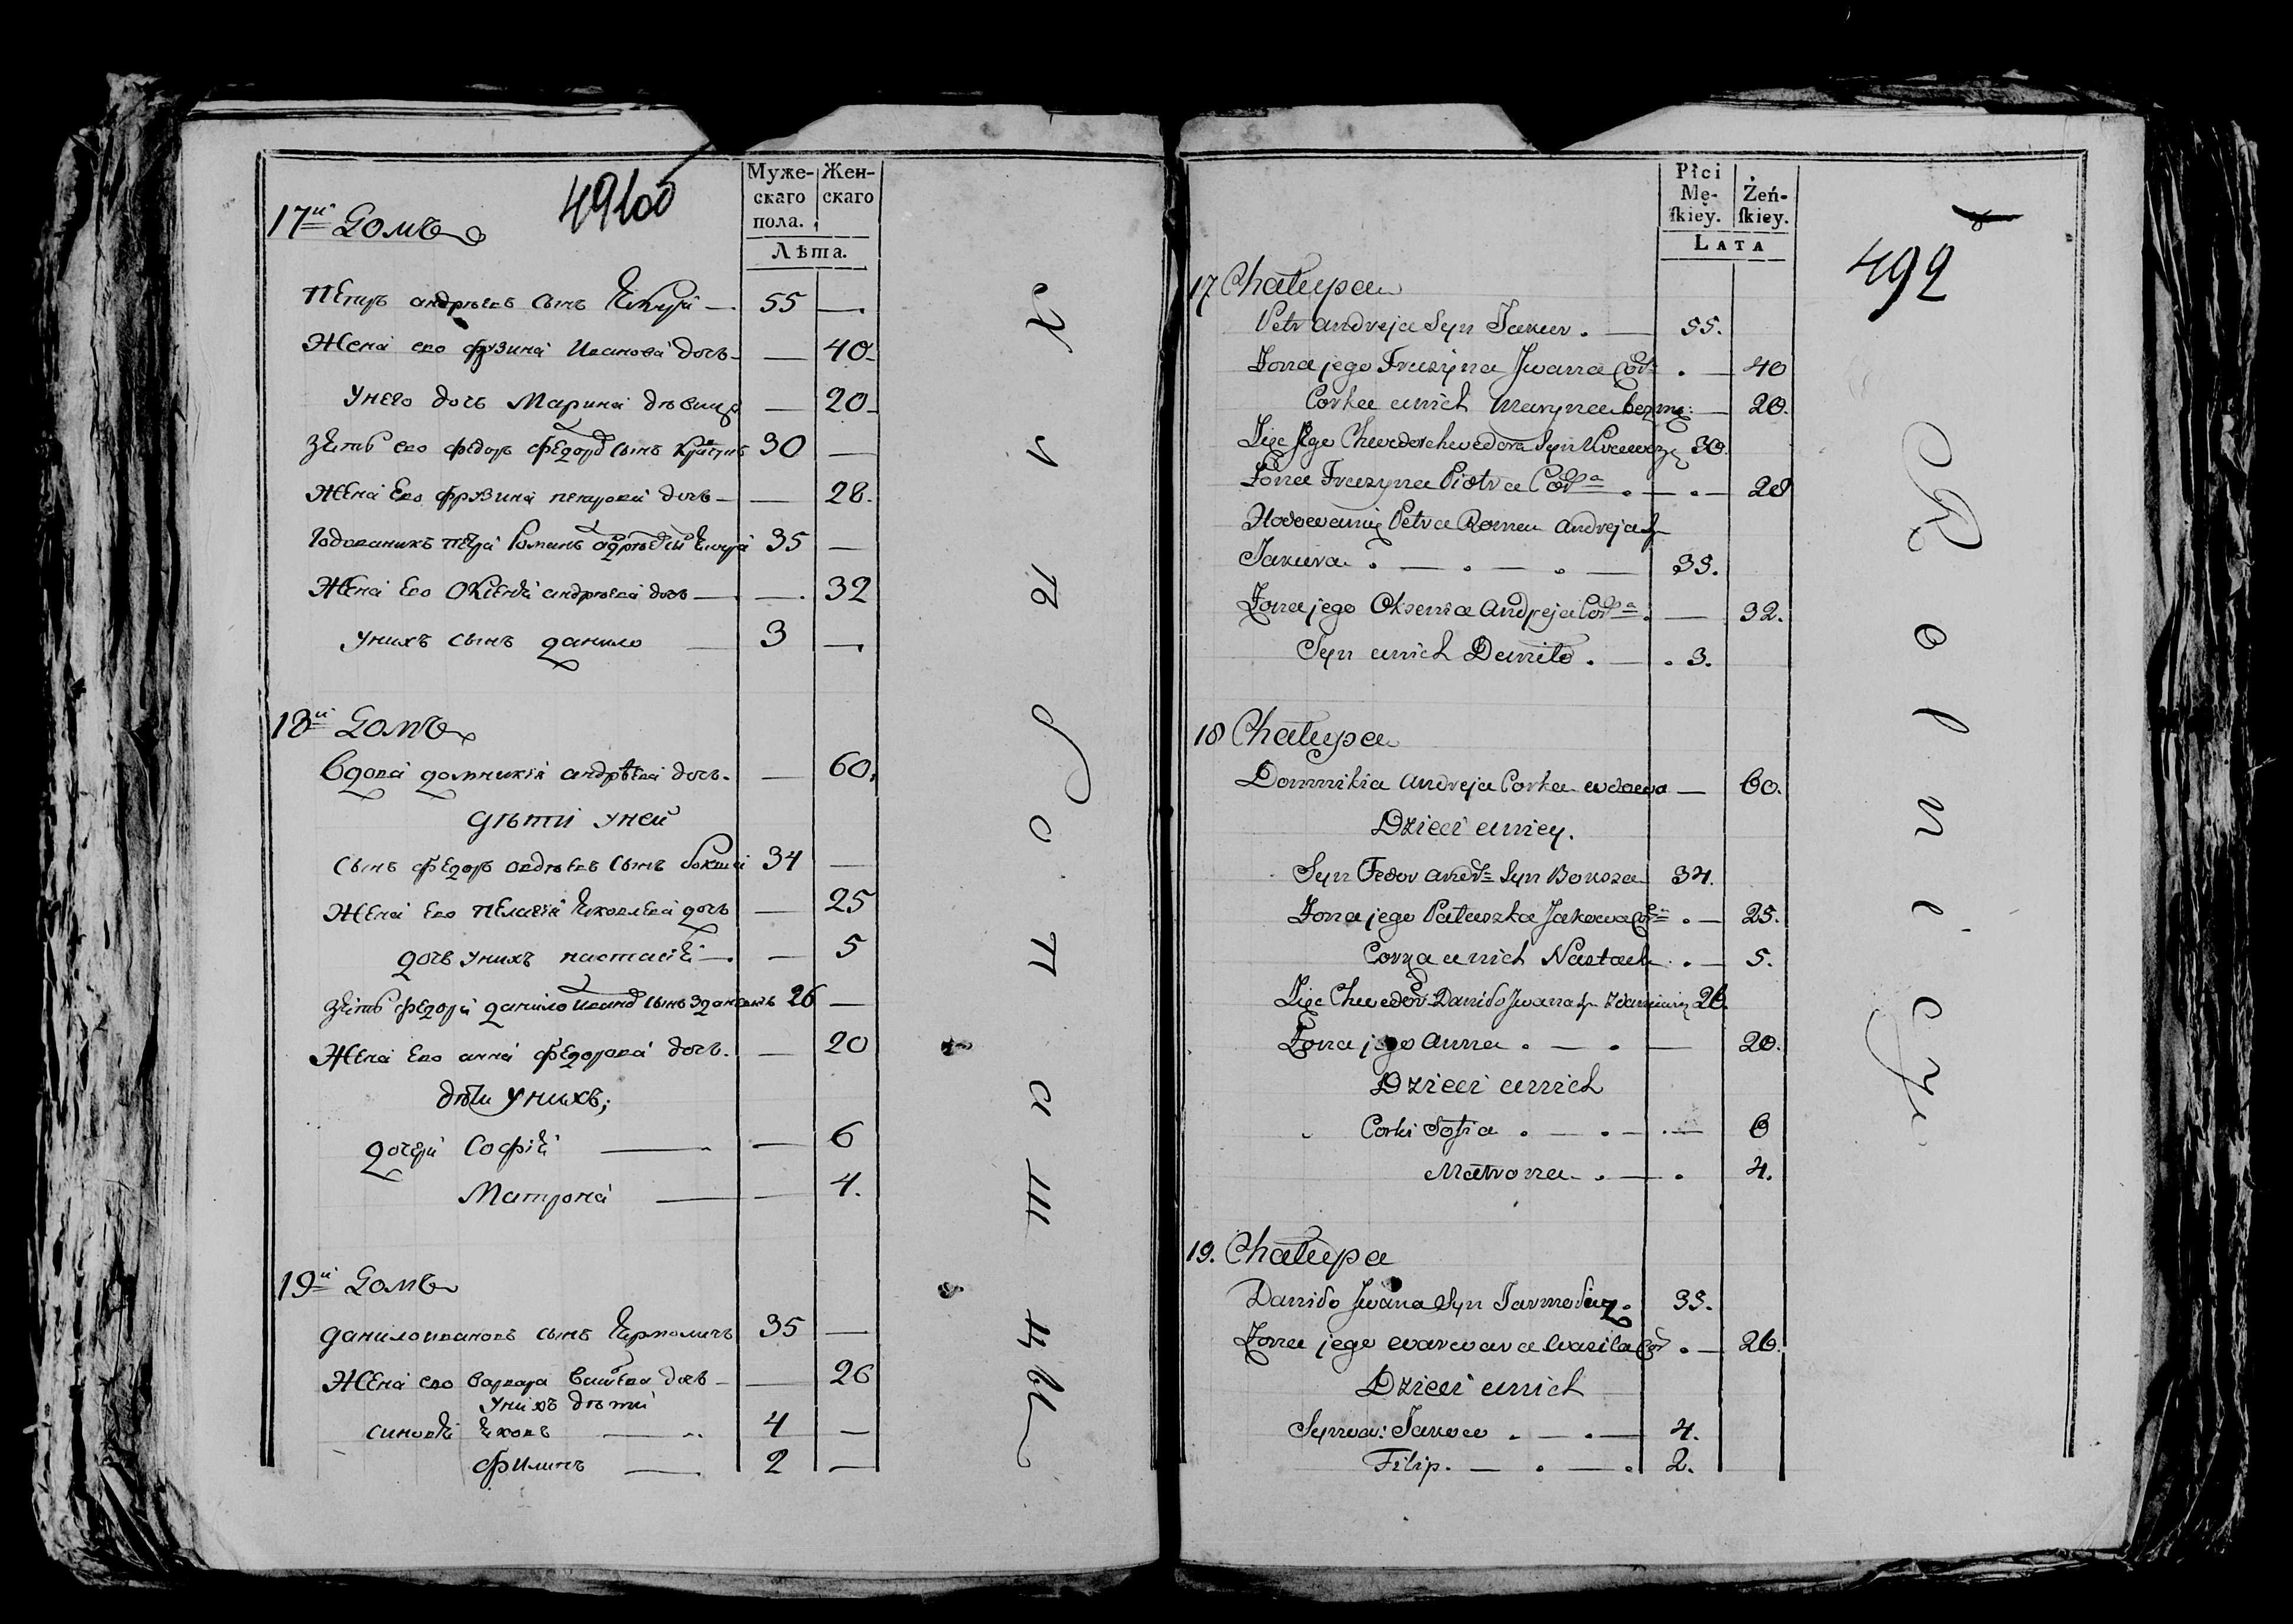 Муже-
скаго
пола.
Жен-
скаго
Лѣта.
17й домъ
Петръ андрѣевъ сынъ 55 —
Жена ево фрузина Иванова дочь — 40
Унего дочь Марина дѣвица — 20
зять ево федоръ федоровъ сынъ 30 —
Жена ево фрузина петрова дочь — 28
годованикъ петра романъ 35 —
Жена ево андрѣева дочь — 32
унихъ сынъ данило 3 —
18й домъ
вдова домникия андрѣева дочь — 60
дѣти уней
сынъ федоръ сынъ 34 —
Жена ево Яковлева дочь — 25
дочь унихъ настасия — 5
зять федора данило Иванов сынъ 26 —
Жена ево анна федорова дочь — 20
дѣти унихъ;
дочери София — 6
Матрона — 4.
19й домъ
данило ивановъ сынъ Ярмоличъ 35 —
Жена ево варвара дочь — 26
унихъ дѣти
синовя яковъ 4 —
филипъ 2 —
Płci
Mę-
ſkiey.
Żeń-
ſkiey.
LATA
492
17 Chałupa
Petr Andreja Syn Jakuw . — 55.
Żona jego Fruzyna Jwana Cór . — 40
Corka unich Maryna — 20.
Zięć jego Chwedor chwedora Syn 30.
Żona Fruzyna Piotra Córa . — . — 28
Hodowaniec Petra Roman Andreja
Jakuwa . — . — . — 35.
Żona jego Oksenia Andreja Córa . — 32.
Syn unich Daniło . — . 3.
18 Chałupa
Domnikia Andreja Corka wdowa — 60.
Dzieci uniey.
Syn Fedor Andr. Syn 34.
Żona jego Pałuszka Jakowa . — 25.
Corka unich Nastazia . — 5.
Zięć Chwedora Daniło Jwana 26.
Żona jego Anna . — . — 20.
Dzieci unich
Corki Sofia . — . — . — 6
Matrona . — . 4.
19. Chałupa
Daniło Jwana Syn Jarmolicz . 35.
Żona jego Warwara Wasila Cor . — 26.
Dzieci unich
Synowi: Jakow . — . — 4.
Filip. — . — . 2.
R o l n i c y